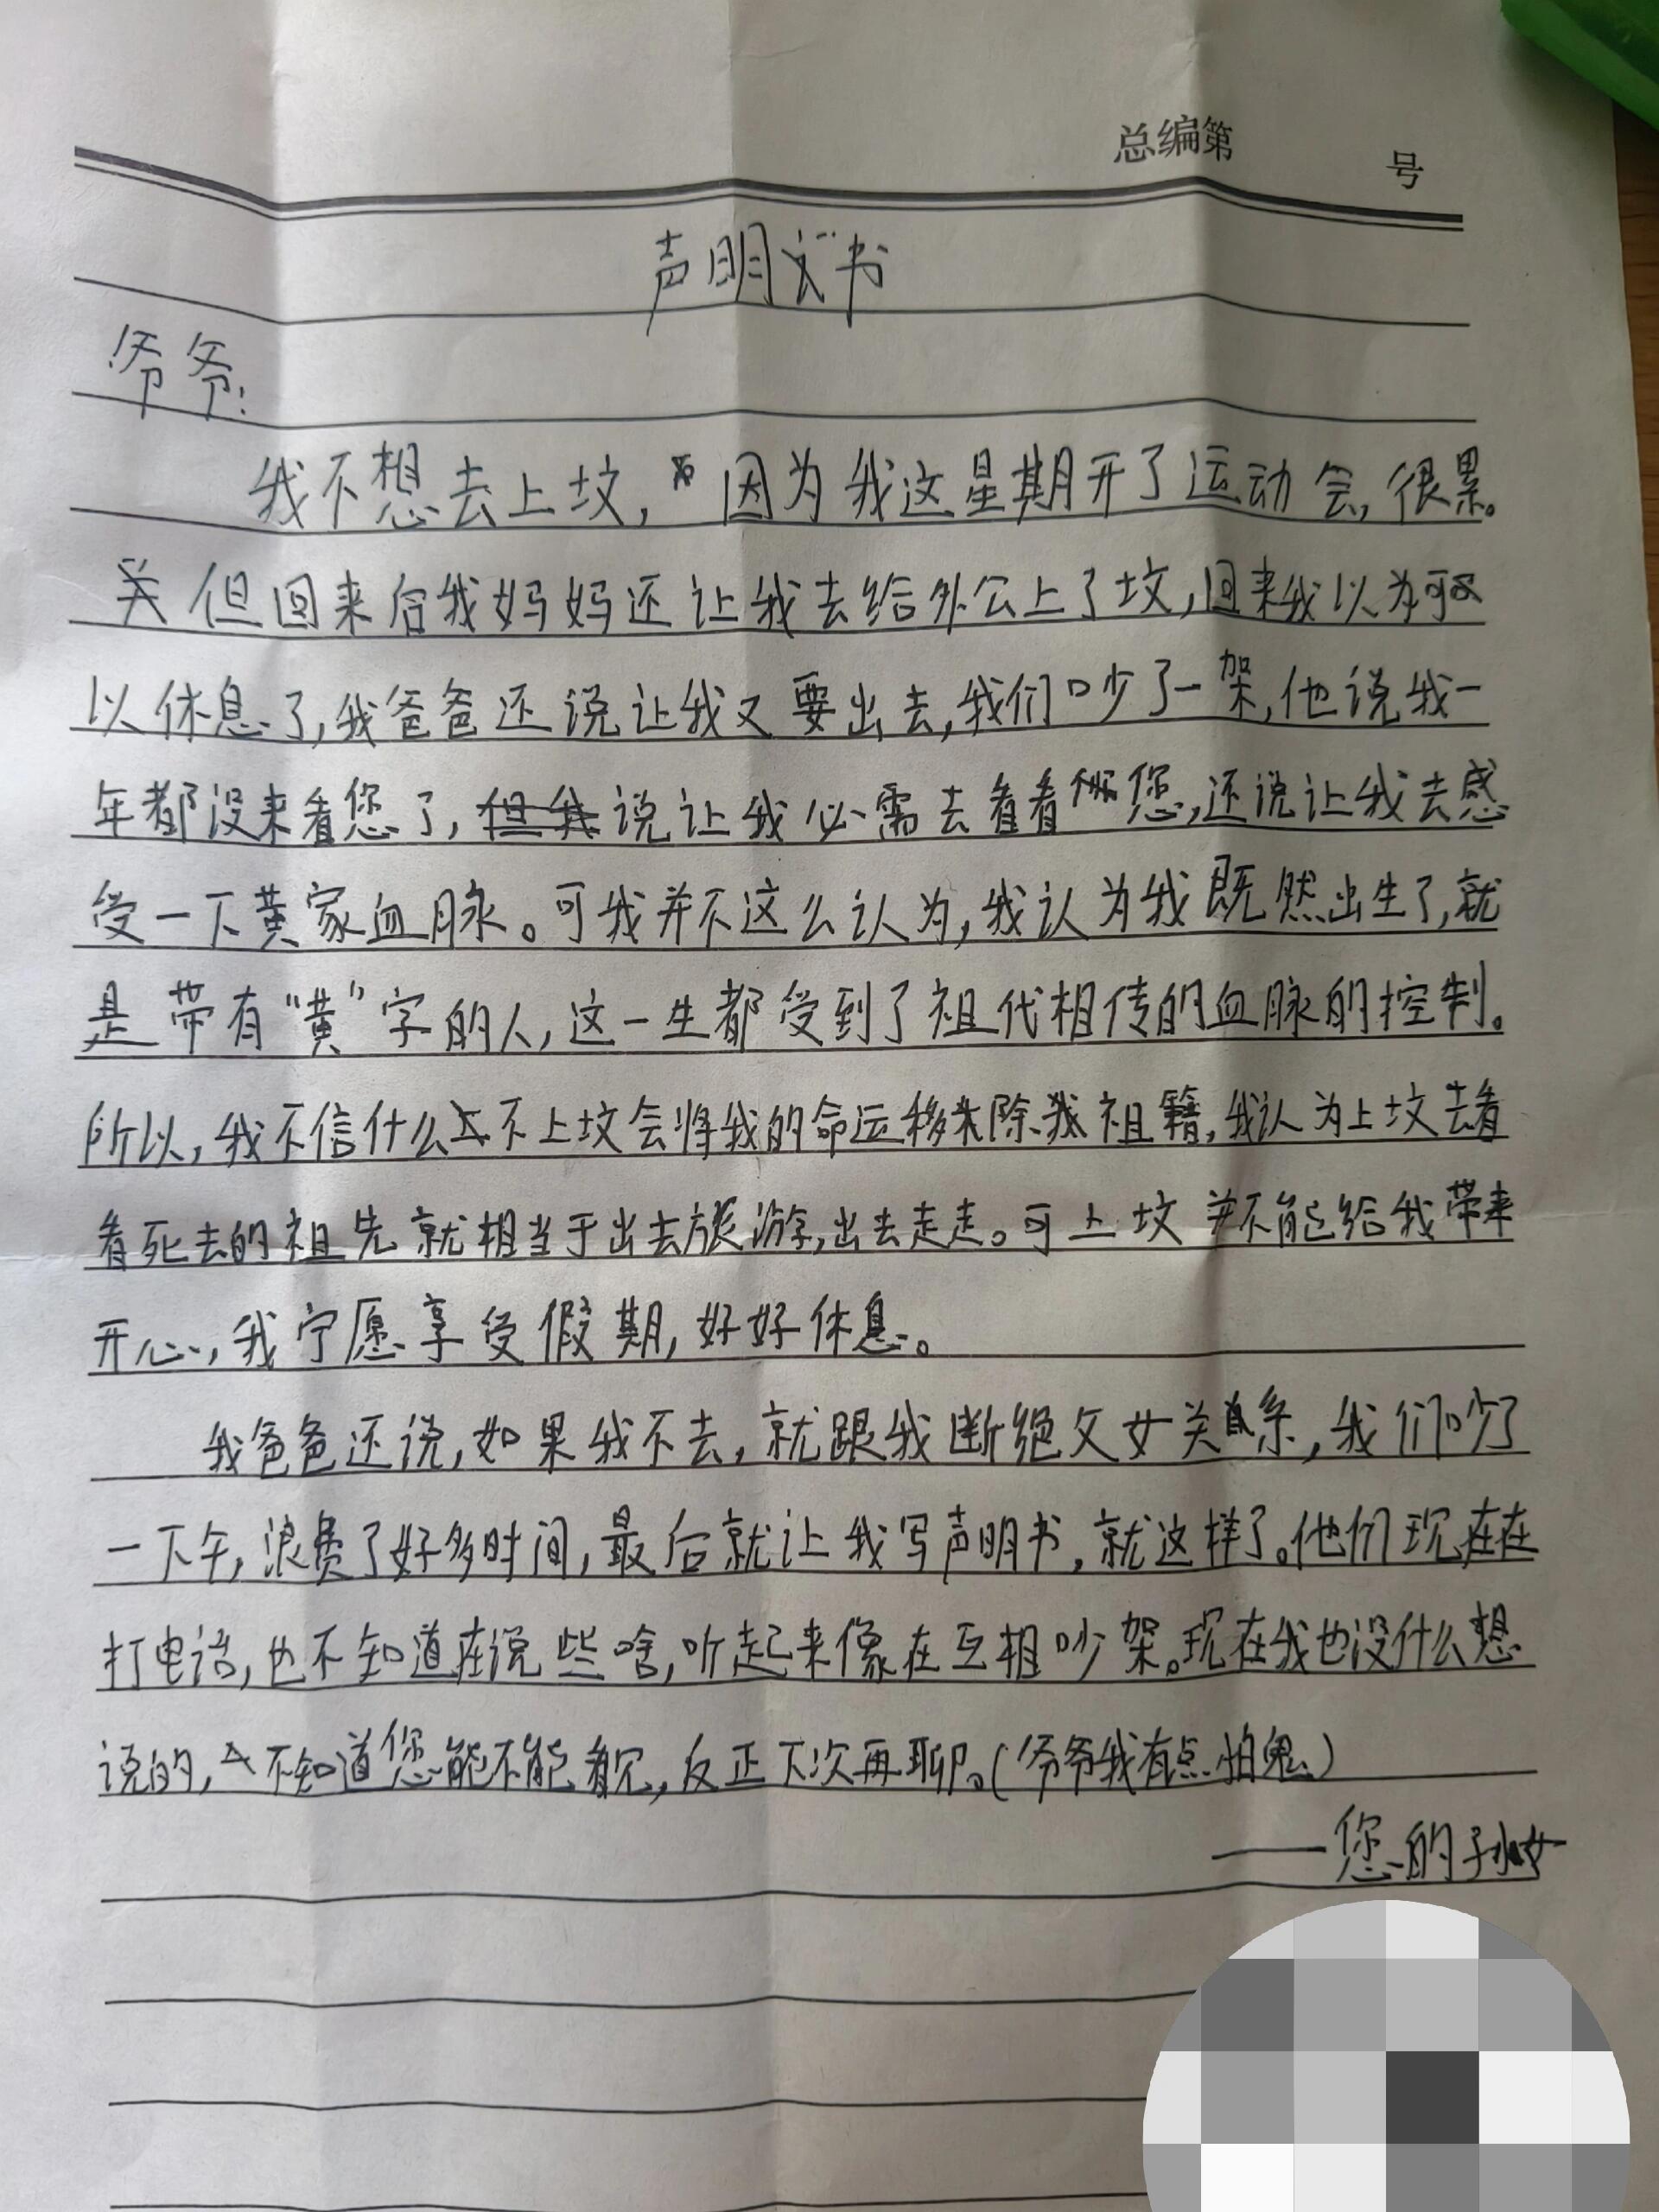 总编第 号
声明书
爷爷:
我不想去上坟,因为我这星期开了运动会,很累。
但回来后我妈妈还让我去给外公上了坟,回来我以为可
以休息了,我爸爸还说让我又要出去,我们吵了一架,他说我一
年都没来看您了,说让我必需去看看您,还说让我去感
受一下黄家血脉。可我并不这么认为,我认为我既然出生了,就
是带有“黄”字的人,这一生都受到了祖代相传的血脉的控制。
所以,我不信什么不上坟会将我的命运移除祖籍,我认为上坟去看
看死去的祖先就相当于出去旅游,出去走走。可上坟并不能给我带来
开心,我宁愿享受假期,好好休息。
我爸爸还说,如果我不去,就跟我断绝父女关系,我们吵了
一下午,浪费了好多时间,最后就让我写声明书,就这样了。他们现在在
打电话,也不知道在说些啥,听起来像在互相吵架。现在我也没什么想
说的,不知道您能不能看见,反正下次再聊。(爷爷我有点怕鬼)
——您的孙女